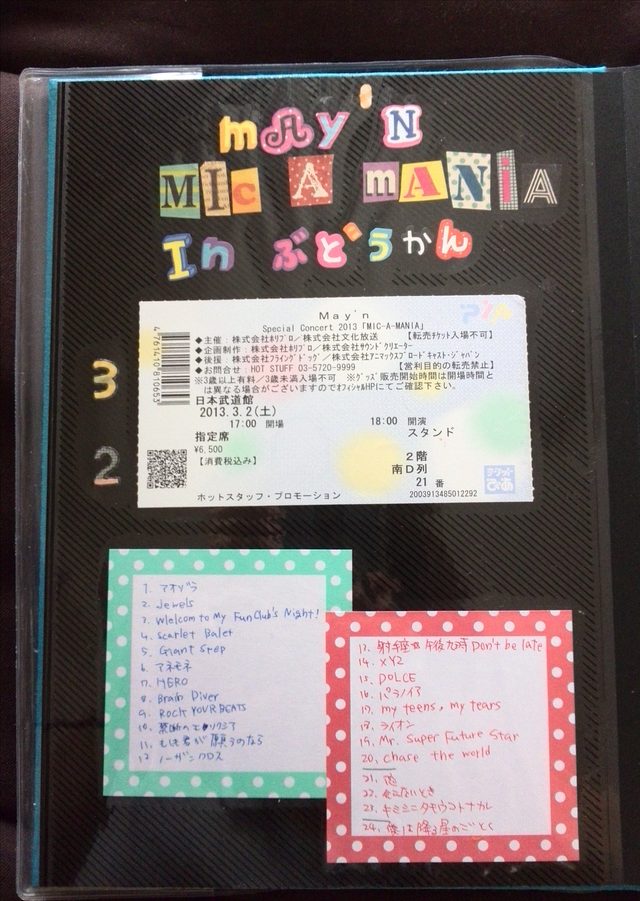 may'n
MIC A MANIA
In ぶどうかん
3
2
May'n
PIA
Special Concert 2013「MIC-A-MANIA」
◆主催:株式会社ホリプロ/株式会社文化放送 【転売チケット入場不可】
◆企画制作:株式会社ホリプロ/株式会社サウンドクリエーター
◆後援:株式会社フライングドッグ/株式会社アニマックスブロードキャスト・ジャパン
◆お問合せ:HOT STUFF 03-5720-9999 【営利目的の転売禁止】
※3歳以上有料/3歳未満入場不可 ※グッズ販売開始時間は開場時間と
は異なる場合がございますのでオフィシャルHPにてご確認下さい。
日本武道館
2013.3.2(土)
17:00 開場 18:00 開演
指定席 スタンド
¥6,500
【消費税込み】
2階
南D列
21 番
ホットスタッフ・プロモーション 2003913485012292
チケットぴあ
4761410810653
1. アオゾラ
2. Jewels
3. Welcom to My FunClub's Night!
4. Scarlet Balet
5. Giant Step
6. アネモネ
7. HERO
8. Brain Diver
9. ROCK YOUR BEATS
10. 禁断のエリクシア
11. もしも君が願うのなら
12 ノーザンクロス
13. 射手座☆午後九時 Don't be late
14. XYZ
15. DOLCE
16. パラノイア
17. my teens, my tears
18. ライオン
19. Mr. Super Future Star
20. chase the world
21.
22. 会いたいとき
23. キミシニタモウコトナカレ
24. 愛は降る星のごとく